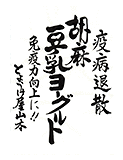 疫病退散
胡麻
豆乳ヨーグルト
免疫力向上に!!
ときわ屋山木